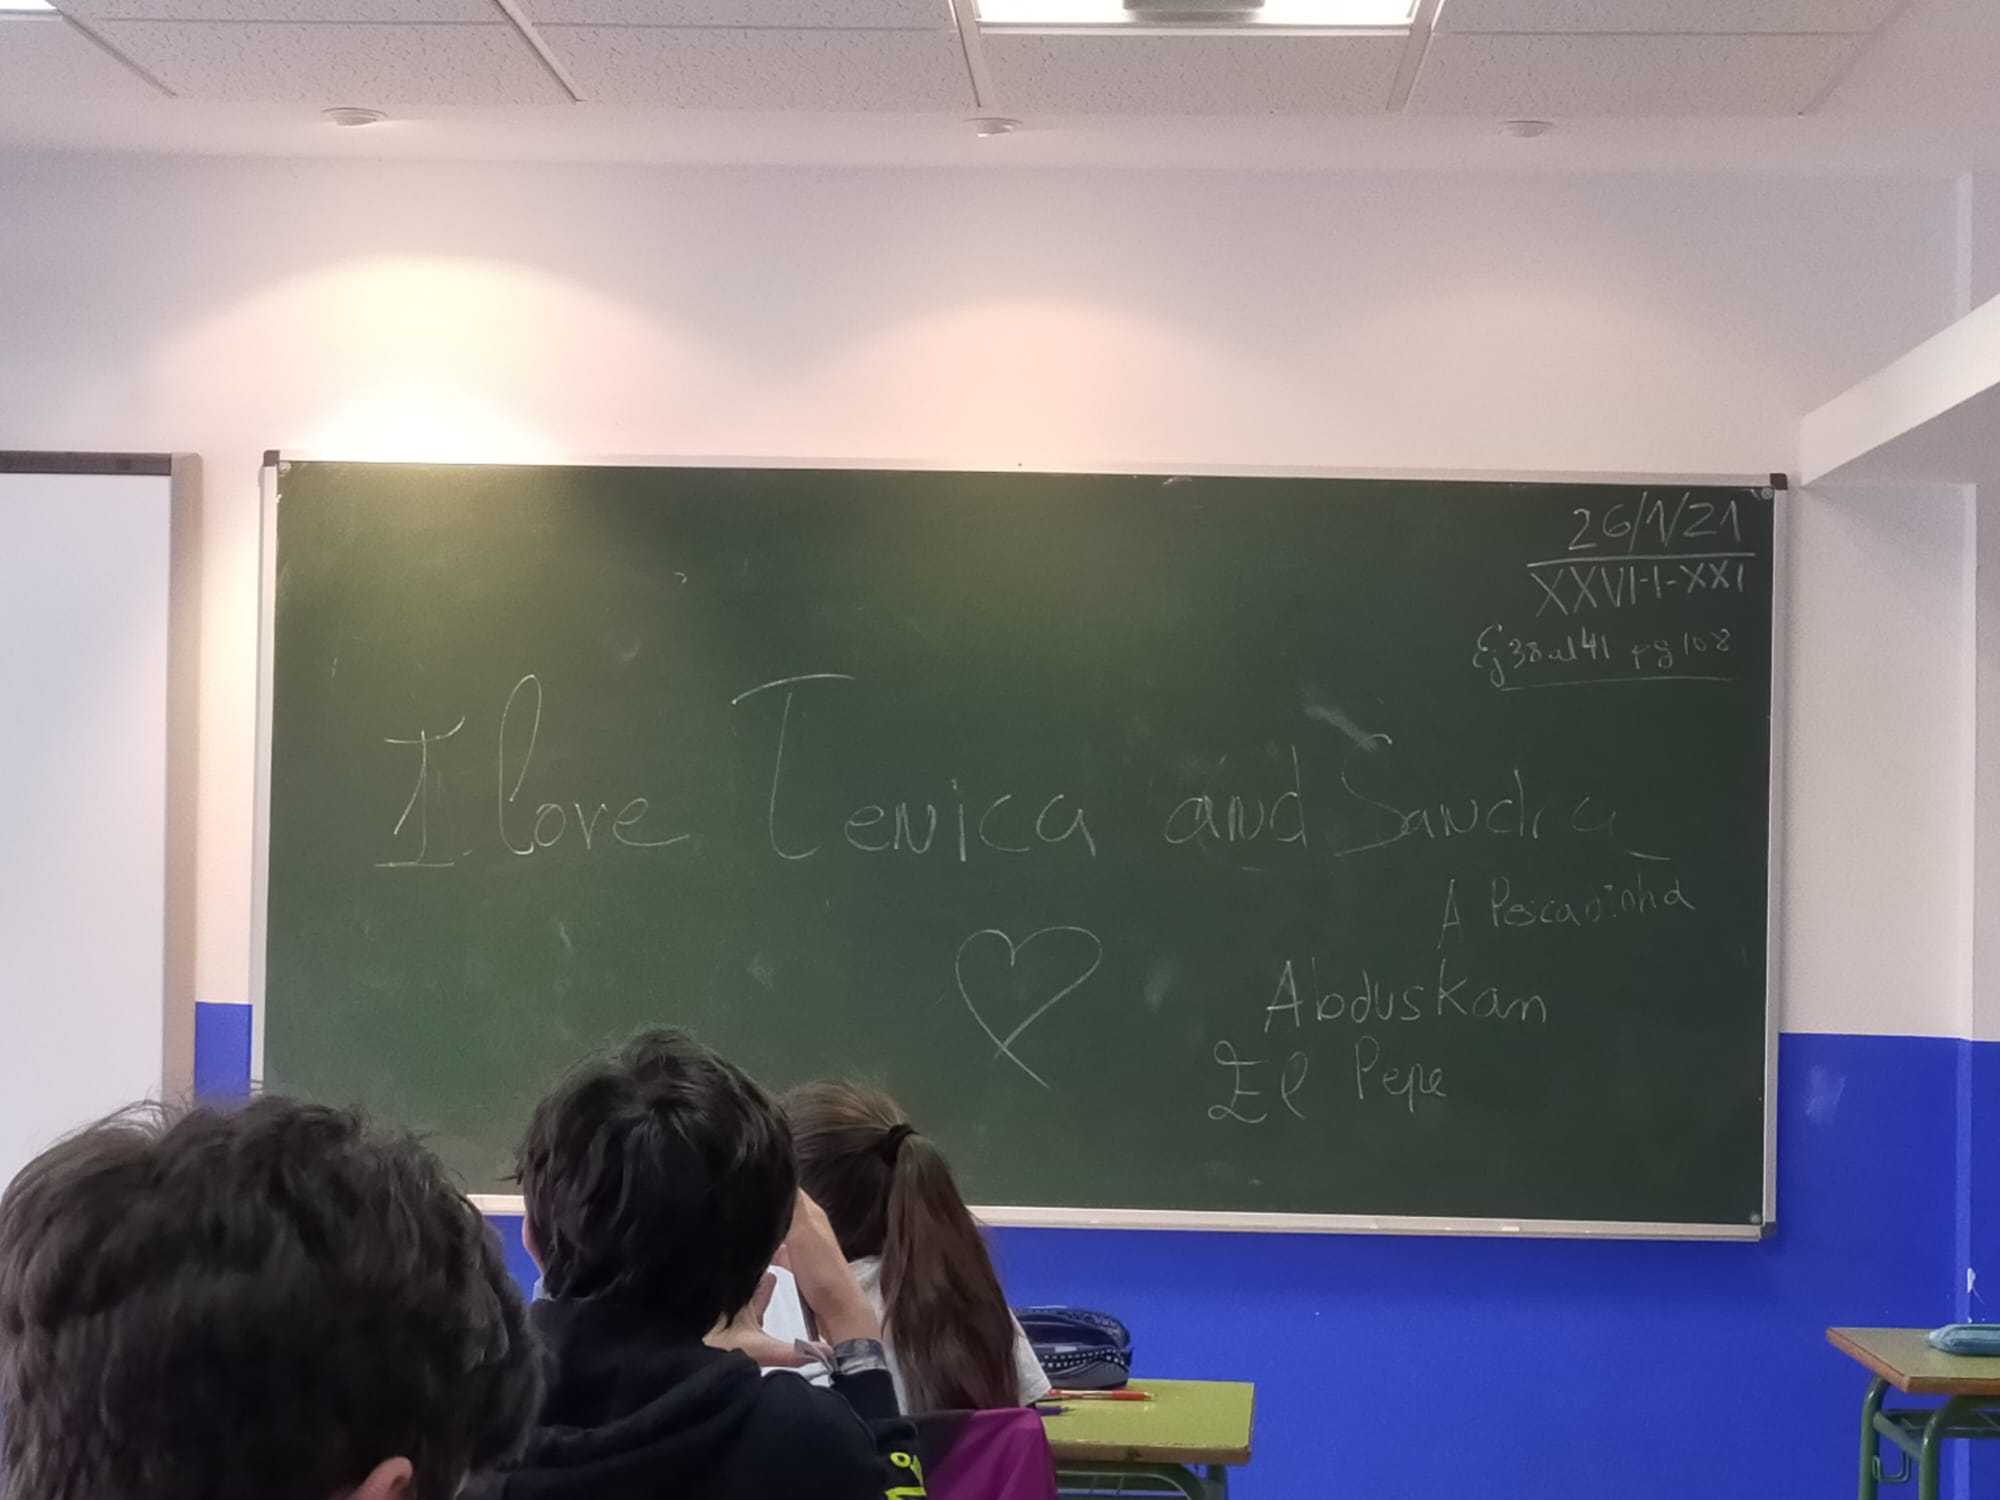 26/1/21
XXVI-I-XXI
Ej 38 al 41 pg 108
I love Tenica and Sandra
A Pescavinha
Abduskan
El Pepe